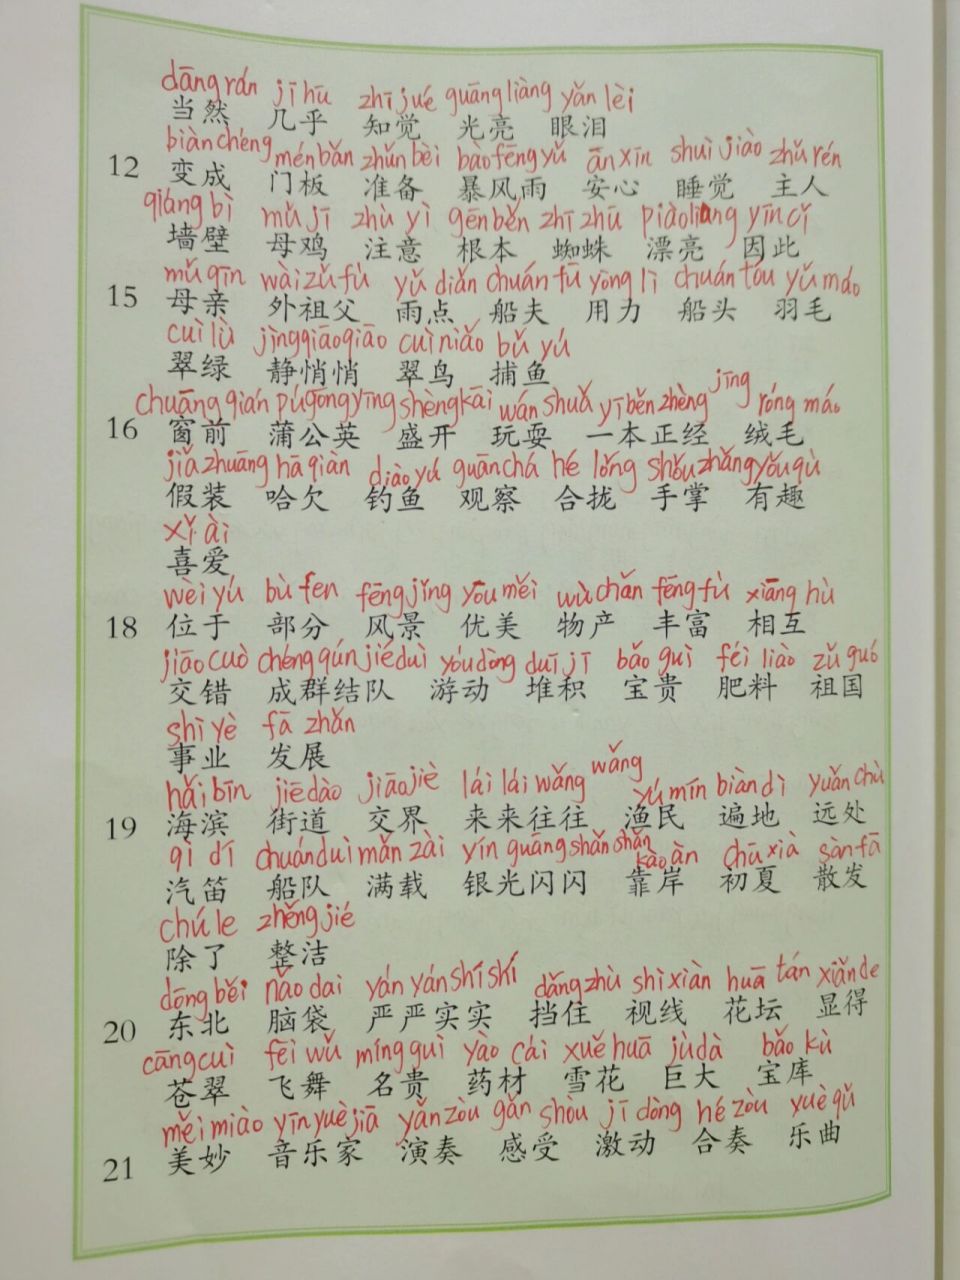 dāng rán jī hū zhī jué guāng liàng yǎn lèi
当然 几乎 知觉 光亮 眼泪
biàn chéng mén bǎn zhǔn bèi bào fēng yǔ ān xīn shuì jiào zhǔ rén
12 变成 门板 准备 暴风雨 安心 睡觉 主人
qiáng bì mǔ jī zhù yì gēn běn zhī zhū piào liang yīn cǐ
墙壁 母鸡 注意 根本 蜘蛛 漂亮 因此
mǔ qīn wài zǔ fù yǔ diǎn chuán fū yòng lì chuán tóu yǔ máo
15 母亲 外祖父 雨点 船夫 用力 船头 羽毛
cuì lǜ jìng qiāo qiāo cuì niǎo bǔ yú
翠绿 静悄悄 翠鸟 捕鱼
chuāng qián pú gōng yīng shèng kāi wán shuǎ yī běn zhèng jīng róng máo
16 窗前 蒲公英 盛开 玩耍 一本正经 绒毛
jiǎ zhuāng hā qiàn diào yú guān chá hé lǒng shǒu zhǎng yǒu qù
假装 哈欠 钓鱼 观察 合拢 手掌 有趣
xǐ ài
喜爱
wèi yú bù fen fēng jǐng yōu měi wù chǎn fēng fù xiāng hù
18 位于 部分 风景 优美 物产 丰富 相互
jiāo cuò chéng qún jié duì yóu dòng duī jī bǎo guì féi liào zǔ guó
交错 成群结队 游动 堆积 宝贵 肥料 祖国
shì yè fā zhǎn
事业 发展
hǎi bīn jiē dào jiāo jiè lái lái wǎng wǎng yú mín biàn dì yuǎn chù
19 海滨 街道 交界 来来往往 渔民 遍地 远处
qì dí chuán duì mǎn zài yín guāng shǎn shǎn kào àn chū xià sàn fā
汽笛 船队 满载 银光闪闪 靠岸 初夏 散发
chú le zhěng jié
除了 整洁
dōng běi nǎo dai yán yán shí shí dǎng zhù shì xiàn huā tán xiǎn de
20 东北 脑袋 严严实实 挡住 视线 花坛 显得
cāng cuì fēi wǔ míng guì yào cái xuě huā jù dà bǎo kù
苍翠 飞舞 名贵 药材 雪花 巨大 宝库
měi miào yīn yuè jiā yǎn zòu gǎn shòu jī dòng hé zòu yuè qǔ
21 美妙 音乐家 演奏 感受 激动 合奏 乐曲